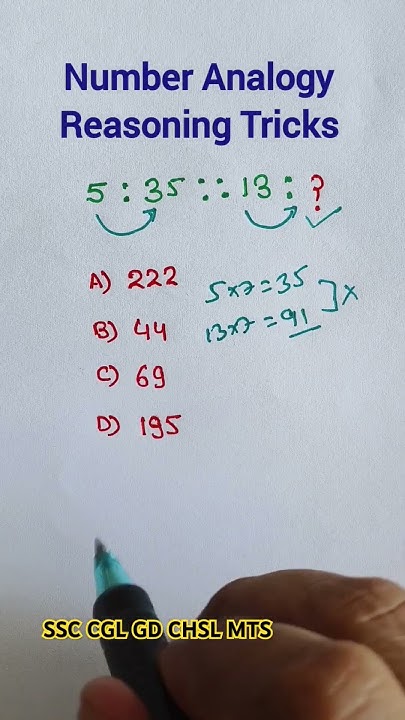 Number Analogy
Reasoning Tricks
5 : 35 :: 13 : ?
A) 222
B) 44
C) 69
D) 195
5×7=35
13×7=91
] ×
SSC CGL GD CHSL MTS